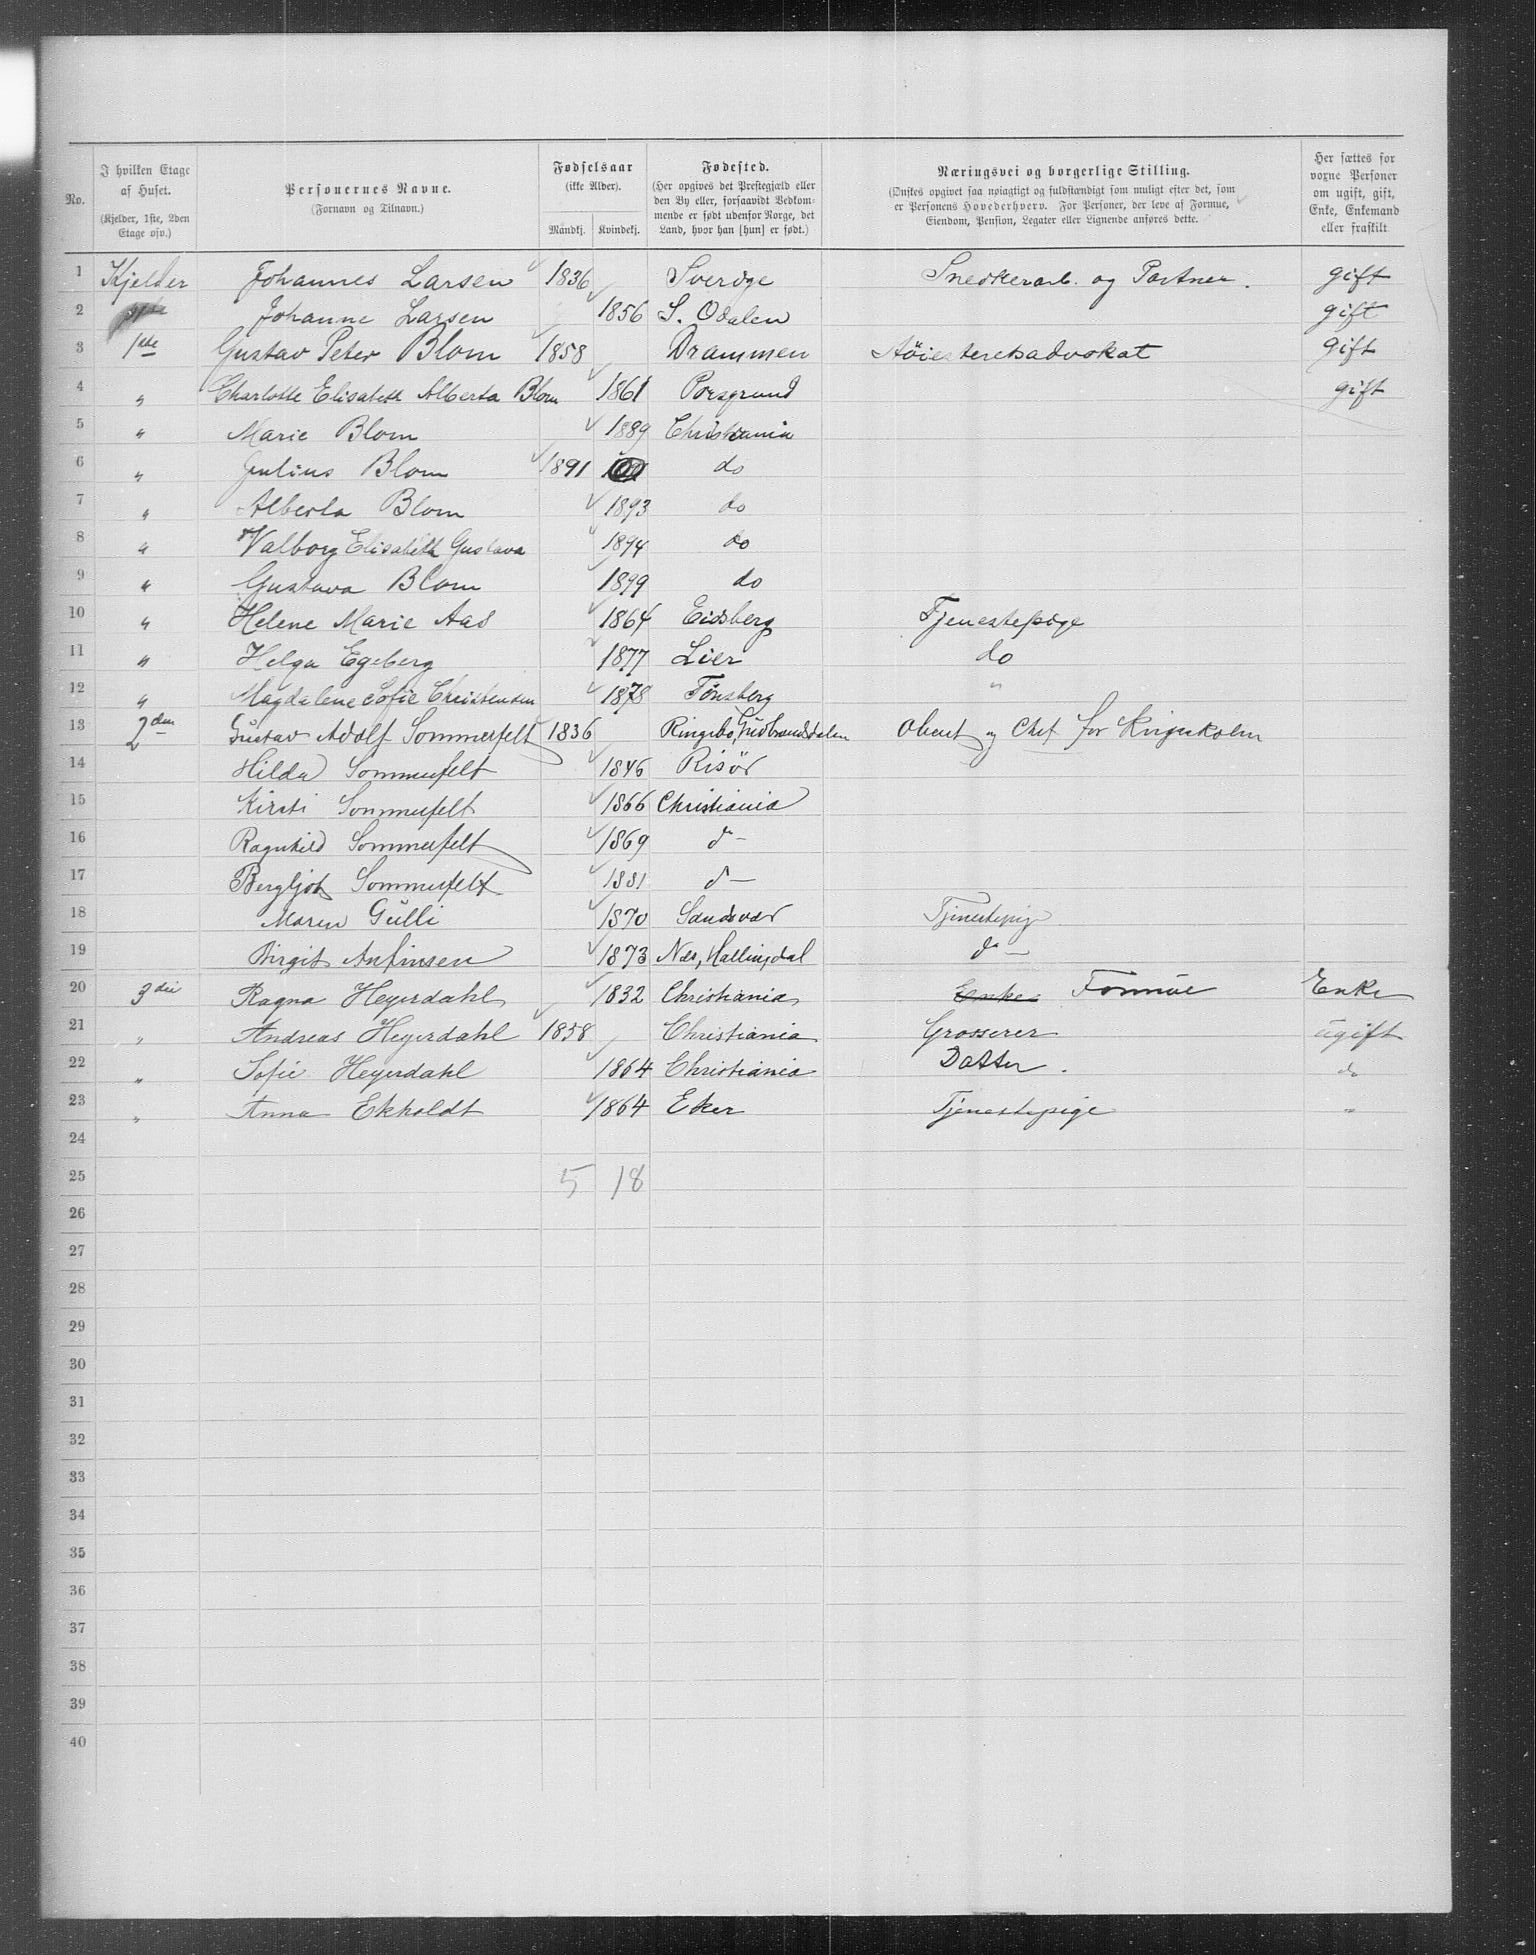 No.
I hvilken Etage af Huset. (Kjelder, 1ste, 2den Etage osv.)
Personernes Navne. (Fornavn og Tilnavn.)
Fødselsaar (ikke Alder). Mandkj. Kvindekj.
Fødested. (Her opgives det Prestegjæld eller den By eller, forsaavidt Vedkommende er født udenfor Norge, det Land, hvor han [hun] er født.)
Næringsvei og borgerlige Stilling. (Ønskes opgivet saa nøiagtigt og fuldstændigt som muligt efter det, som er Personens Hovederhverv. For Personer, der leve af Formue, Eiendom, Pension, Legater eller Lignende anføres dette.)
Her sættes for voxne Personer om ugift, gift, Enke, Enkemand eller fraskilt
1 Kjelder Johannes Larsen 1836 Sverige Snedkerarb. og Portner. gift
2 Johanne Larsen 1856 S. Odalen gift
3 1ste Gustav Peter Blom 1858 Drammen Høiesteretsadvokat gift
4 " Charlotte Elisabeth Alberta Blom 1861 Porsgrund gift
5 " Marie Blom 1889 Christiania
6 " Julius Blom 1891 do
7 " Alberta Blom 1893 do
8 " Valborg Elisabeth Gustava 1894 do
9 " Gustava Blom 1899 do
10 " Helene Marie Aas 1864 Eidsberg Tjenestepige
11 " Helga Egeberg 1877 Lier do
12 " Magdalene Sofie Christensen 1878 Tönsberg "
13 2den Gustav Adolf Sommerfelt 1836 Ringebo, Gudbrandsdalen Oberst og Chef for
14 Hilda Sommerfelt 1846 Risör
15 Kirsti Sommerfelt 1866 Christiania
16 Ragnhild Sommerfelt 1869 do
17 Bergljot Sommerfelt 1881 do
18 Maren Gulli 1870 Sandsvær Tjenestepige
19 Birgit Anfinsen 1873 Nes, Hallingdal do
20 3die Ragna Heyerdahl 1832 Christiania Enke Formue Enke
21 " Andreas Heyerdahl 1858 Christiania Grosserer ugift
22 " Sofie Heyerdahl 1864 Christiania Datter. do
23 " Anna Ekholdt 1864 Eker Tjenestepige "
24
25 5 18
26
27
28
29
30
31
32
33
34
35
36
37
38
39
40